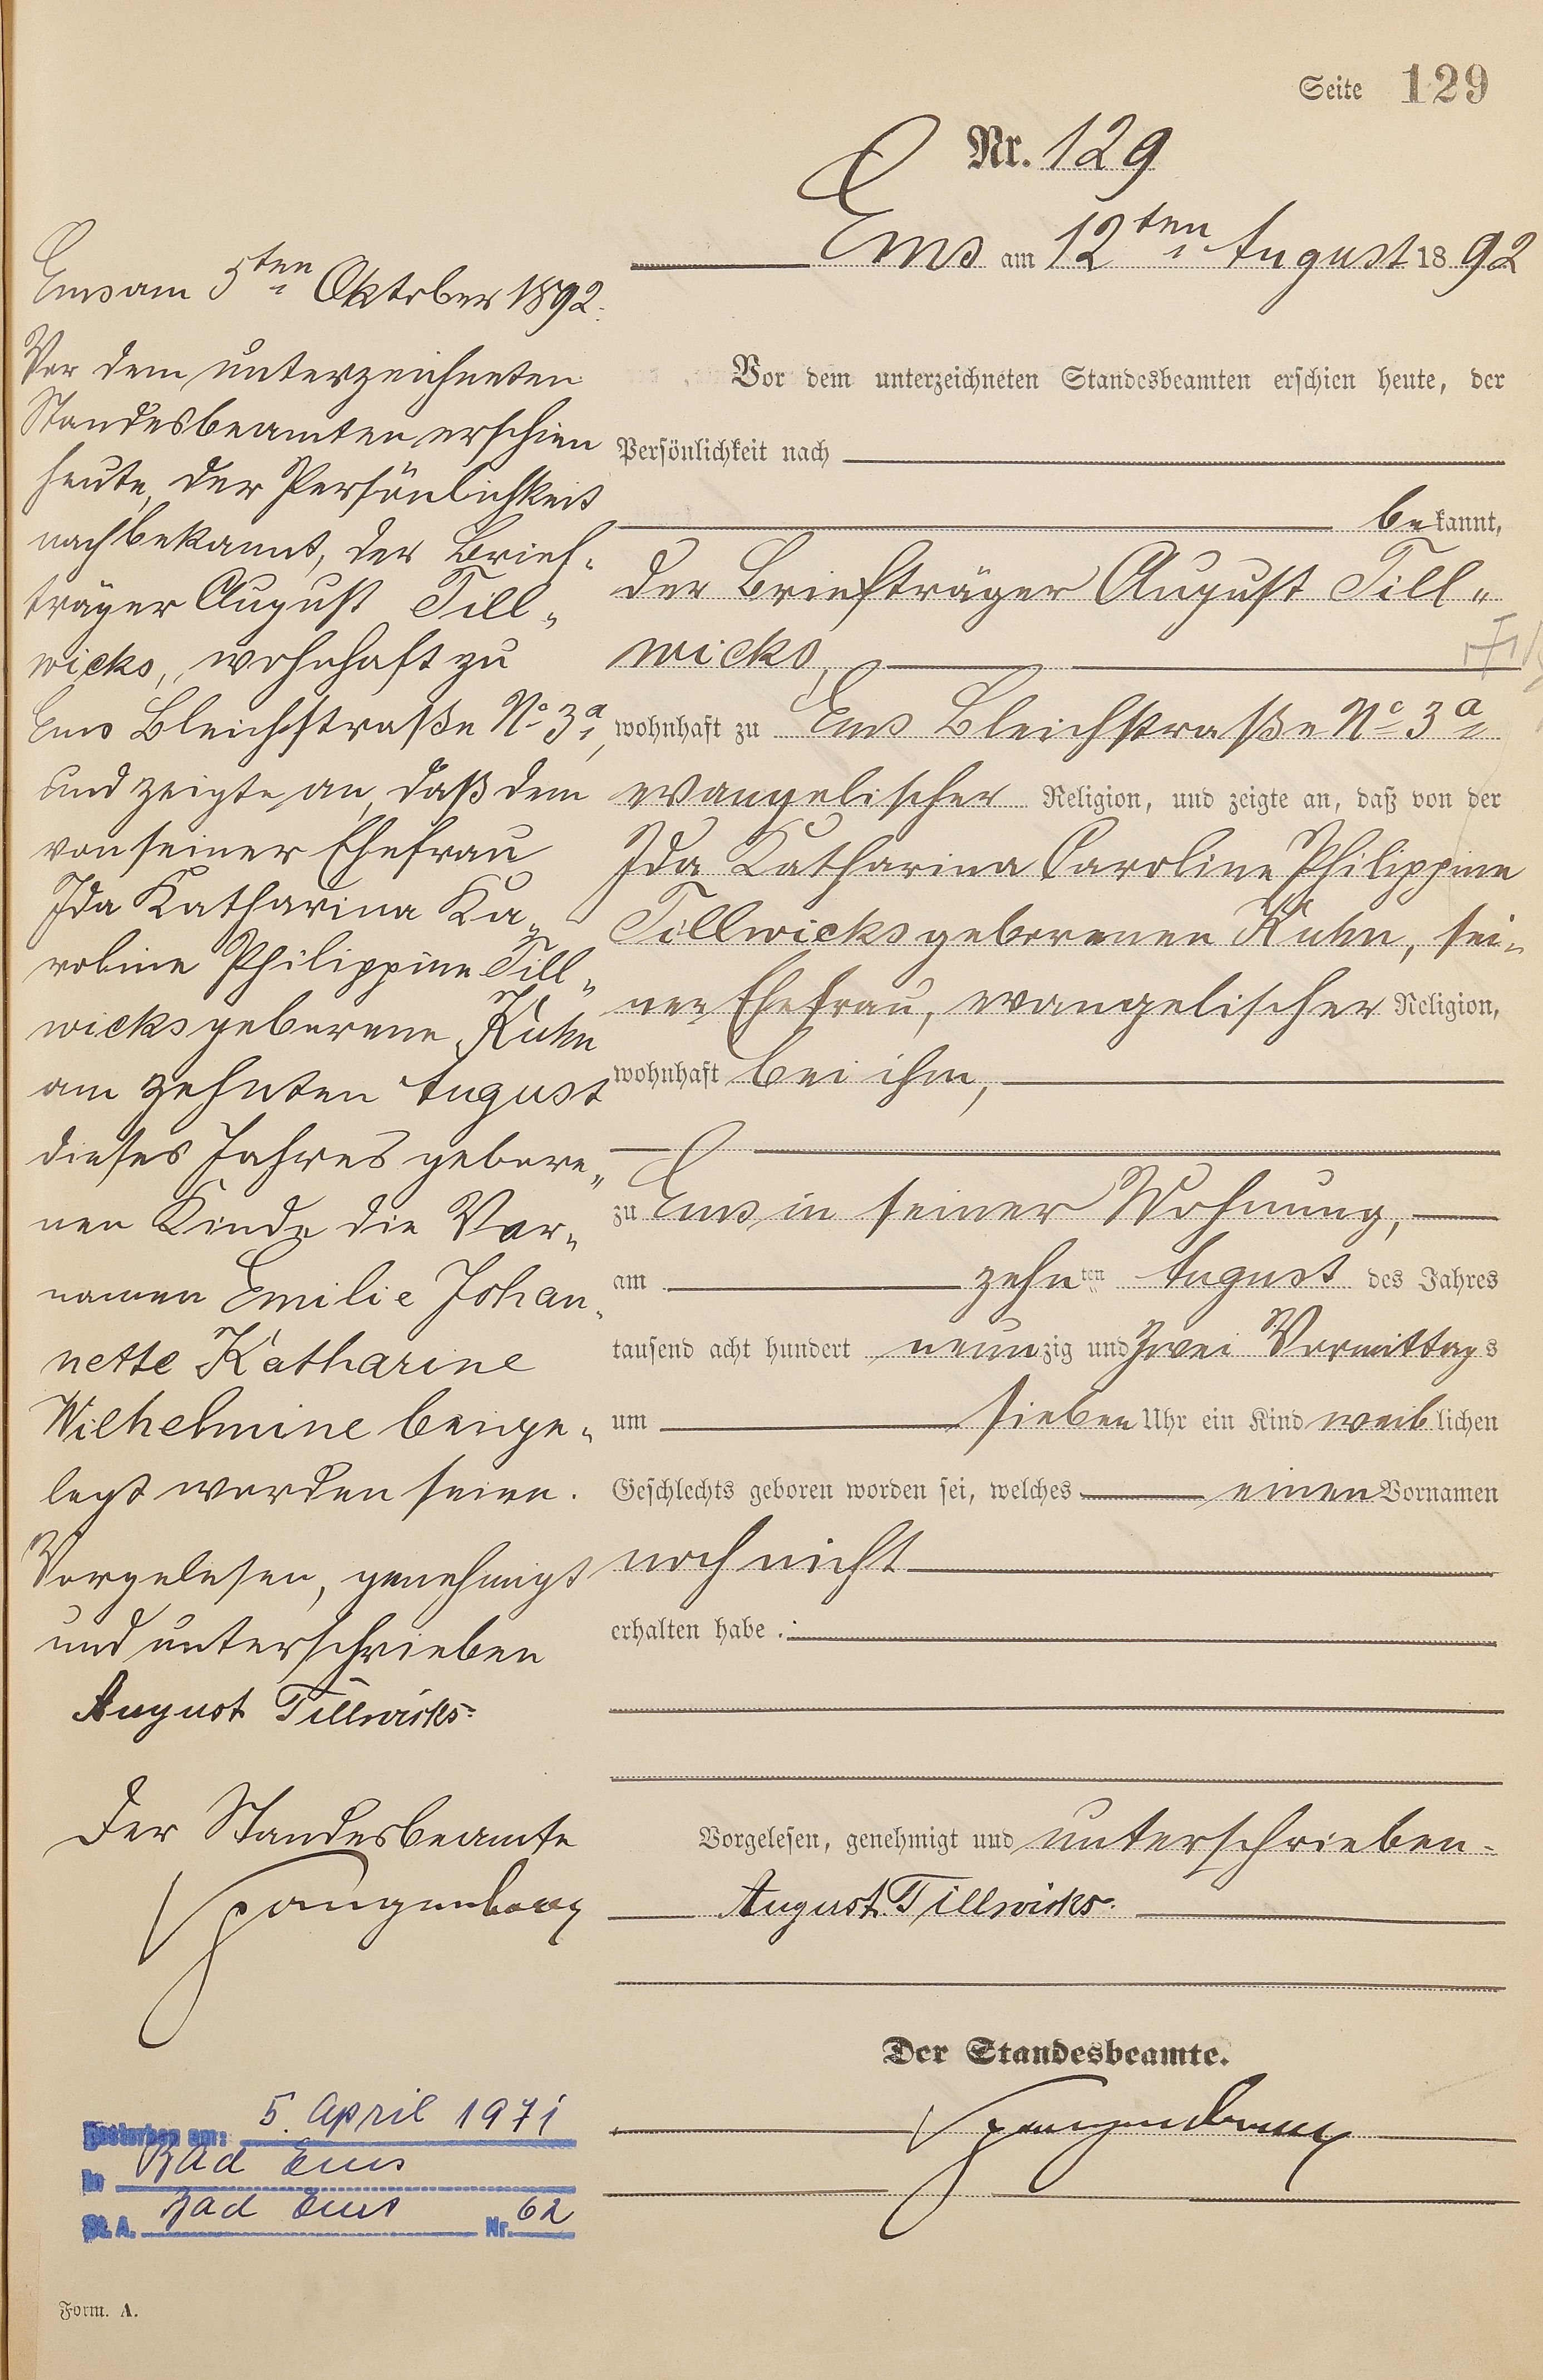 Seite 129
Nr. 129
Ems am 12ten August 1892
Vor dem unterzeichneten Standesbeamten erschien heute, der
Persönlichkeit nach
bekannt,
der Briefträger August Till„
wicks,
wohnhaft zu Ems Bleichstraße No 3a
evangelischer Religion, und zeigte an, daß von der
Ida Katharina Caroline Philippine
Tillwicks geborenen Kuhn, sei„
ner Ehefrau, evangelischer Religion,
wohnhaft bei ihm,
zu Ems in seiner Wohnung,
am zehnten August des Jahres
tausend acht hundert neunzig und zwei Vormittags
um sieben Uhr ein Kind weiblichen
Geschlechts geboren worden sei, welches einen Vornamen
noch nicht
erhalten habe.
Vorgelesen, genehmigt und unterschrieben
August Tillwicks.
Der Standesbeamte.
Spangenberg
Ems am 5ten Oktober 1892.
Vor dem unterzeichneten
Standesbeamten erschien
heute, der Persönlichkeit
nach bekannt, der Brief„
träger August Till„
wicks, wohnhaft zu
Ems Bleichstraße No 3a,
und zeigte an, daß dem
von seiner Ehefrau
Ida Katharina Ka„
roline Philippine Till„
wicks geborene Kuhn
am zehnten August
dieses Jahres gebore„
nen Kinde die Vor„
namen Emilie Johan„
nette Katharine
Wilhelmine beige„
legt worden seien.
Vorgelesen, genehmigt
und unterschrieben
August Tillwicks.
Der Standesbeamte
Spangenberg
Gestorben am: 5. April 1971
In Bad Ems
St. A. Bad Ems Nr. 62
Form. A.